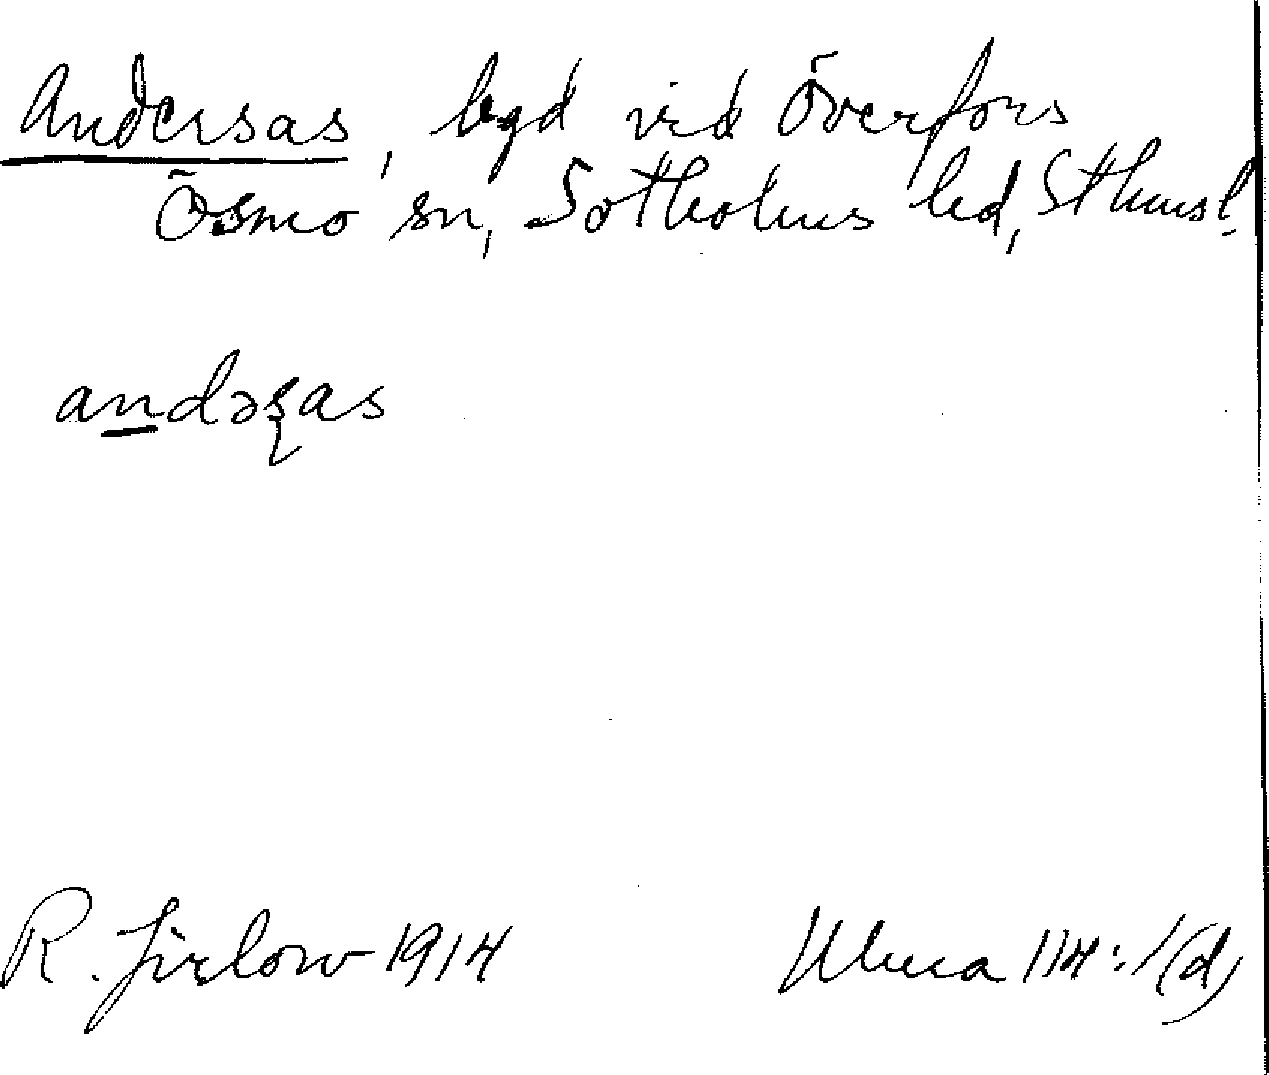 Andersas, bgd vid Överfors
Ösmo sn, Sotholms hd, Sthmsl.
andəʂas
R. Jirlow 1914
Ulma 114:1(d)